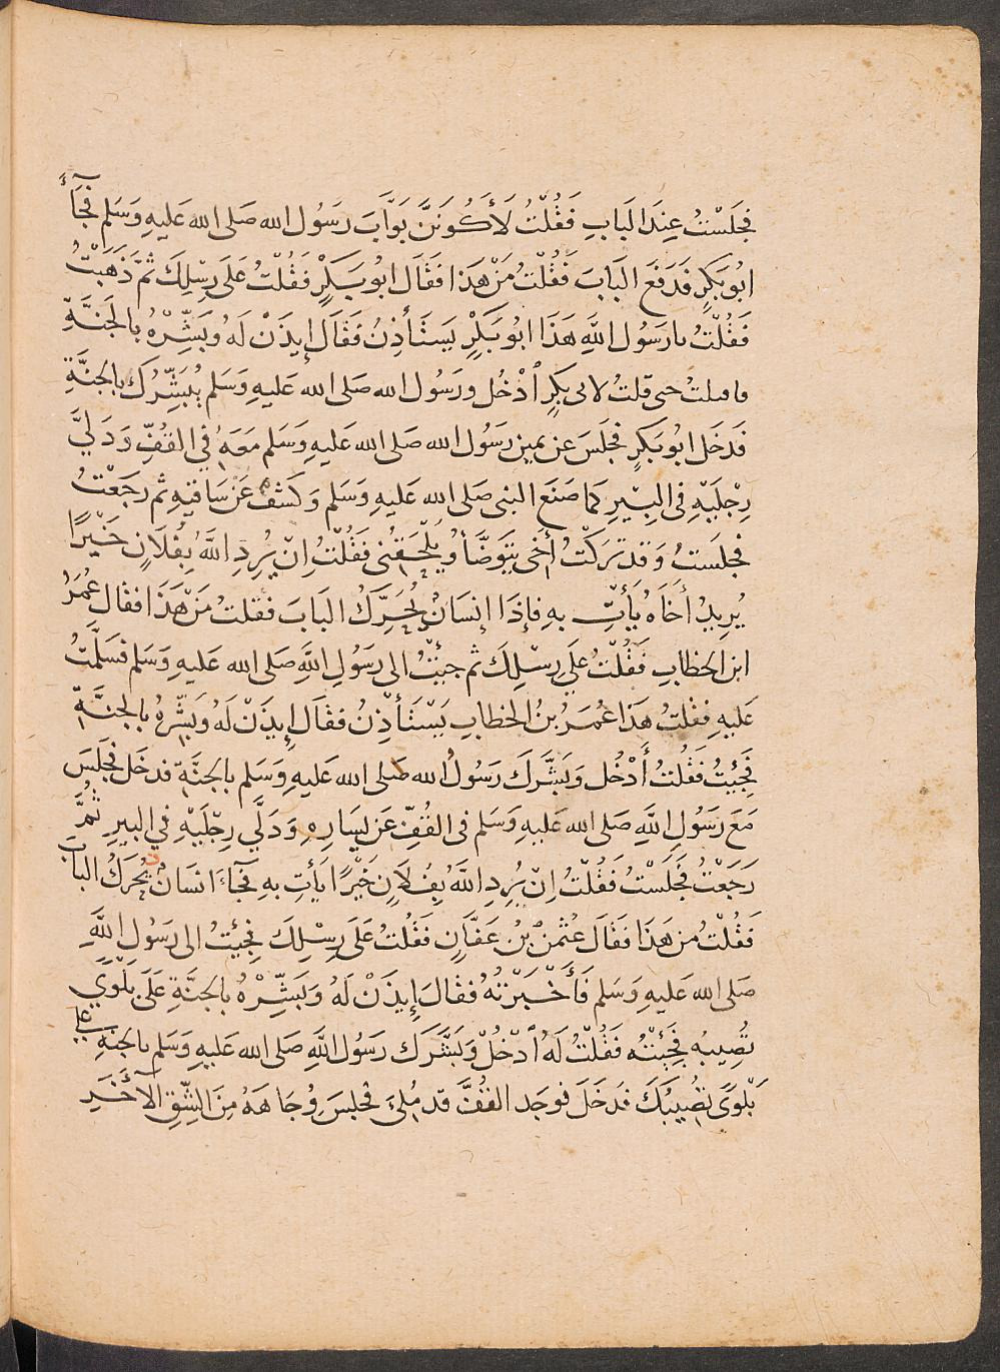 فَجَلَسْتُ عِنْدَ البَابِ فَقُلْتُ لَأَكُونَنَّ بَوَّابَ رَسُول الله صَلى الله عَليهِ وَسَلم فَجَآءَ
ابُو بَكرٍ فَدَفَعَ البَابَ فَقُلْتُ مَنْ هَذا فقَال ابُو بَكرٍ فَقُلْتُ عَلَى رِسْلِكَ ثمَّ ذَهَبْتُ
فَقُلْتُ يا رَسُول اللَّهِ هَذَا ابُو بَكْرٍ يَسْتَأذِنُ فَقَال إيذَنْ لَهُ وَبَشِّرْهُ بالجَنَّةِ
فاقبلتُ حتى قلتُ لابى بَكرٍ ٱدْخُل ورَسُول الله صَلى الله عَليهِ وَسَلم يُبَشِّرُكَ بالجَنَّةِ
فَدَخَل ابُو بَكرٍ فجَلَسَ عن يمين رَسُول الله صَلى الله عَليهِ وَسَلم مَعَهُ في القُفِّ وَدَلَّيَ
رِجْلَيْهِ فى البِيْرِ كمَا صَنَعَ النبى صَلى الله عَليهِ وَسَلم وَكَشَفَ عَنْ سَاقيْهِ ثم رجَعْتُ
فجلَستُ وَقدْ تَرَكْتُ أخى يتَوَضَّأُ وَيُلْحَقُنِى فَقُلْتُ اِنْ يُرِدِ اللَّهُ بِفُلَانٍ خَيْرًا
يُرِيدُ أخَاهُ يَأتِ بهِ فإذَا إنسَانٌ يُحَرِّكُ البَابَ فقلتُ مَنْ هَذَا فقَال عُمَرُ
ابن الخطابِ فَقُلْتُ عَلَى رِسْلِكَ ثم جِئتُ الى رَسُولِ اللَّهِ صَلى الله عَليهِ وَسَلم فسَلَّمتُ
عَليهِ فقلتُ هَذا عُمَرُ بنُ الخطابِ يَسْتَأذِنُ فقَال إيذَنْ لَهُ وَبَشِّرهُ بالجنَّةِ
فَجِئتُ فَقُلتُ أُدْخُل وَبَشَّرَكَ رَسُولُ الله صَلى الله عَليهِ وَسَلم بالجنَّةِ فدخَل فجَلَسَ
مَعَ رَسُولِ اللَّهِ صَلى الله عَليهِ وَسَلم فى القُفِّ عَن يَسَارِهِ وَدَلَّي رِجْلَيْهِ في البيرِ ثُمَّ
رَجَعْتُ فَجَلَسْتُ فقُلْتُ اِنْ يُرِدِ اللَّهُ بِفُلَانٍ خَيْرًا يَأتِ بهِ فَجَآءَ انسَانٌ يُحَرِكُ البابَ
فَقُلْتُ من هَذَا فَقَالَ عُثمنُ بْنُ عَفَّانٍ فَقُلتُ عَلَى رِسْلِكَ فجِئتُ الى رَسُولِ اللَّهِ
صَلى الله عَليهِ وَسَلم فَأَخْبَرْتُهُ فقَالَ إيذَنْ لَهُ وَبَشِّرْهُ بالجنَّةِ عَلَى بَلْوَي
تُصِيبُه فجِئْتُه فقُلْتُ لَهُ ٱدْخُلْ وَبَشَّرَكَ رَسُولُ اللَّهِ صَلى الله عَليهِ وَسَلم بالجنةِ على
بَلْوَيَ تُصِيبُكَ فَدخَلَ فوَجَد القُفَّ قد مُلئَ فجلسَ وُجَاهَهُ مِنَ الشِّقِ الآخَرِ